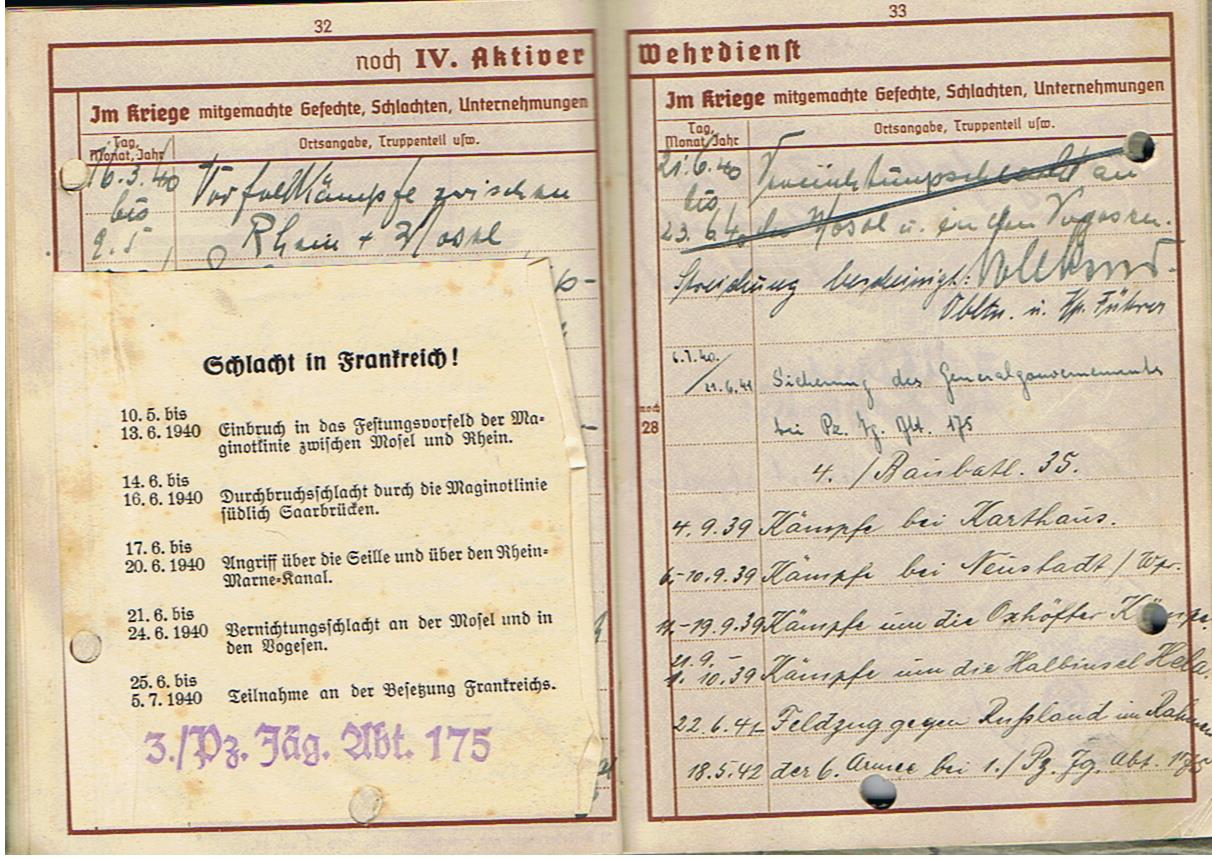 32
noch IV. Aktiver
Im Kriege mitgemachte Gefechte, Schlachten, Unternehmungen
Tag, Monat, Jahr
Ortsangabe, Truppenteil usw.
16.3.40 Vorfeldkämpfe zwischen
bis Rhein + Mosel
9.5
Schlacht in Frankreich!
10. 5. bis
13. 6. 1940 Einbruch in das Festungsvorfeld der Ma-
ginotlinie zwischen Mosel und Rhein.
14. 6. bis
16. 6. 1940 Durchbruchsschlacht durch die Maginotlinie
südlich Saarbrücken.
17. 6. bis
20. 6. 1940 Angriff über die Seille und über den Rhein-
Marne-Kanal.
21. 6. bis
24. 6. 1940 Vernichtungsschlacht an der Mosel und in
den Vogesen.
25. 6. bis
5. 7. 1940 Teilnahme an der Besetzung Frankreichs.
3./Pz. Jäg. Abt. 175
33
Wehrdienst
Im Kriege mitgemachte Gefechte, Schlachten, Unternehmungen
Tag, Monat, Jahr
Ortsangabe, Truppenteil usw.
21.6.40 Vernichtungsschlacht an
bis
23.6.40 der Mosel u. in den Vogesen.
Streichung bescheinigt:
Obltn. u. Kp. Führer
6.7.40
/21.6.41 Sicherung des Generalgouvernements
noch
28
bei Pz. Jg. Abt. 175
4. / Baubatl. 35.
4.9.39 Kämpfe bei Karthaus.
6.-10.9.39 Kämpfe bei Neustadt / Wpr.
11.-19.9.39 Kämpfe um die Oxhöfter Kämpe.
21.9.-
1.10.39 Kämpfe um die Halbinsel Hela.
22.6.41- Feldzug gegen Rußland im Rahmen
18.5.42 der 6. Armee bei 1./ Pz. Jg. Abt. 175